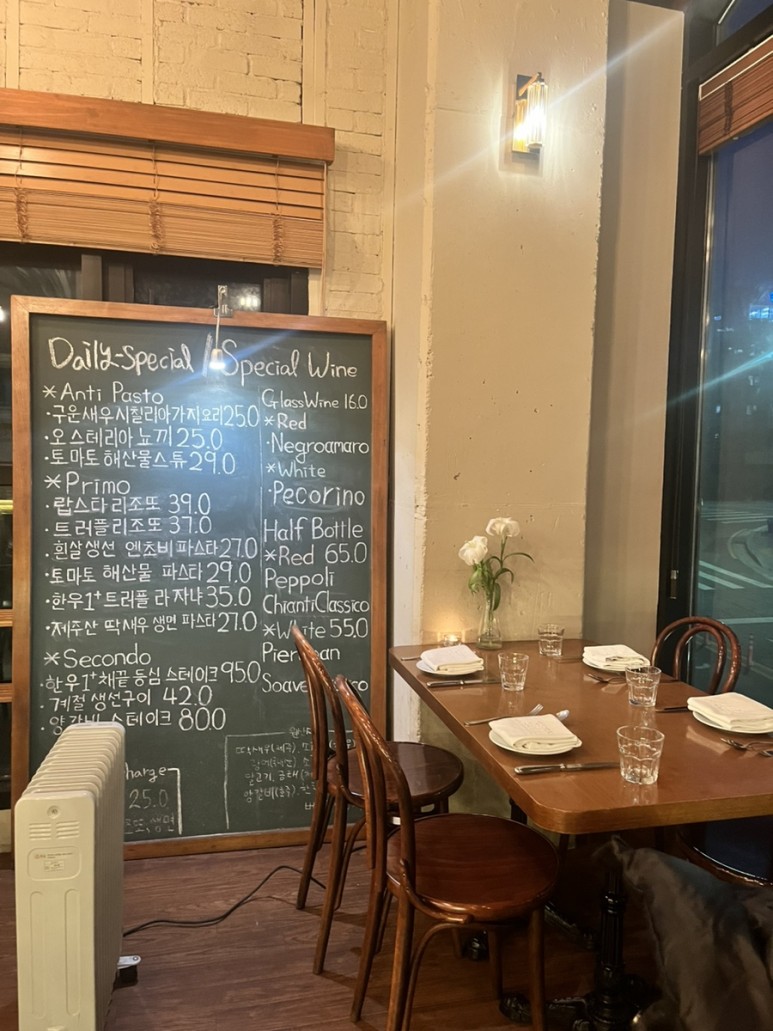 Daily-Special
*Anti Pasto
·구운새우시칠리아가지요리 25.0
·오스테리아 뇨끼 25.0
·토마토 해산물스튜 29.0
*Primo
·랍스타 리조또 39.0
·트러플 리조또 37.0
·흰살생선 엔초비 파스타 27.0
·토마토 해산물 파스타 29.0
·한우1⁺ 트러플 라자냐 35.0
·제주산 딱새우 생면 파스타 27.0
*Secondo
·한우1⁺ 채끝 등심 스테이크 95.0
·계절 생선구이 42.0
스테이크 80.0
harge
25.0
생면
Special Wine
GlassWine 16.0
*Red
·Negroamaro
*White
·Pecorino
Half Bottle
*Red 65.0
Peppoli
Chianti Classico
*White 55.0
Soave